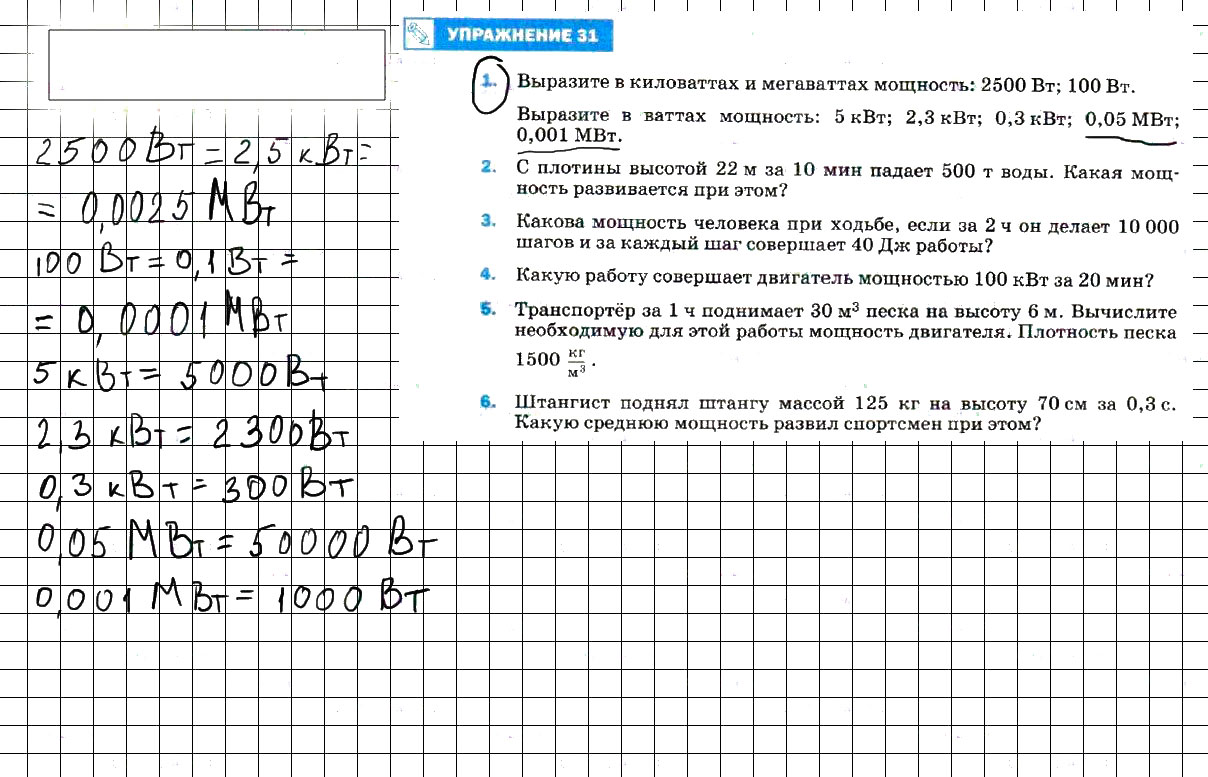 УПРАЖНЕНИЕ 31
1. Выразите в киловаттах и мегаваттах мощность: 2500 Вт; 100 Вт.
Выразите в ваттах мощность: 5 кВт; 2,3 кВт; 0,3 кВт; 0,05 МВт;
0,001 МВт.
2. С плотины высотой 22 м за 10 мин падает 500 т воды. Какая мощ-
ность развивается при этом?
3. Какова мощность человека при ходьбе, если за 2 ч он делает 10 000
шагов и за каждый шаг совершает 40 Дж работы?
4. Какую работу совершает двигатель мощностью 100 кВт за 20 мин?
5. Транспортёр за 1 ч поднимает 30 м³ песка на высоту 6 м. Вычислите
необходимую для этой работы мощность двигателя. Плотность песка
1500 кг/м³.
6. Штангист поднял штангу массой 125 кг на высоту 70 см за 0,3 с.
Какую среднюю мощность развил спортсмен при этом?
2500Вт = 2,5 кВт =
= 0,0025 МВт
100 Вт = 0,1 Вт =
= 0,0001 МВт
5 кВт = 5000Вт
2,3 кВт = 2300Вт
0,3 кВт = 300Вт
0,05 МВт = 50000 Вт
0,001 МВт = 1000 Вт